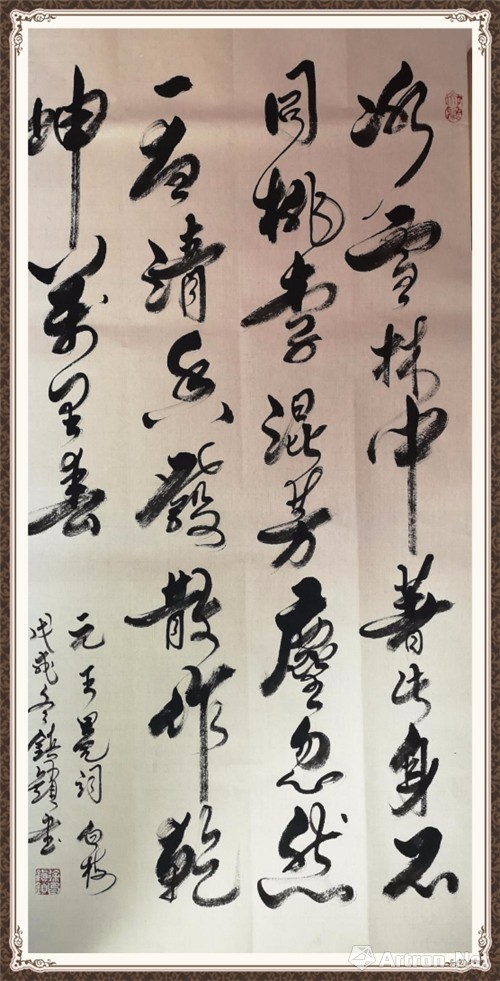 冰雪林中著此身不
同桃李混芳塵忽然
一夜清香發散作乾
坤萬里春
元王冕詞 白梅
戊戌冬鎮書
Artron.Net